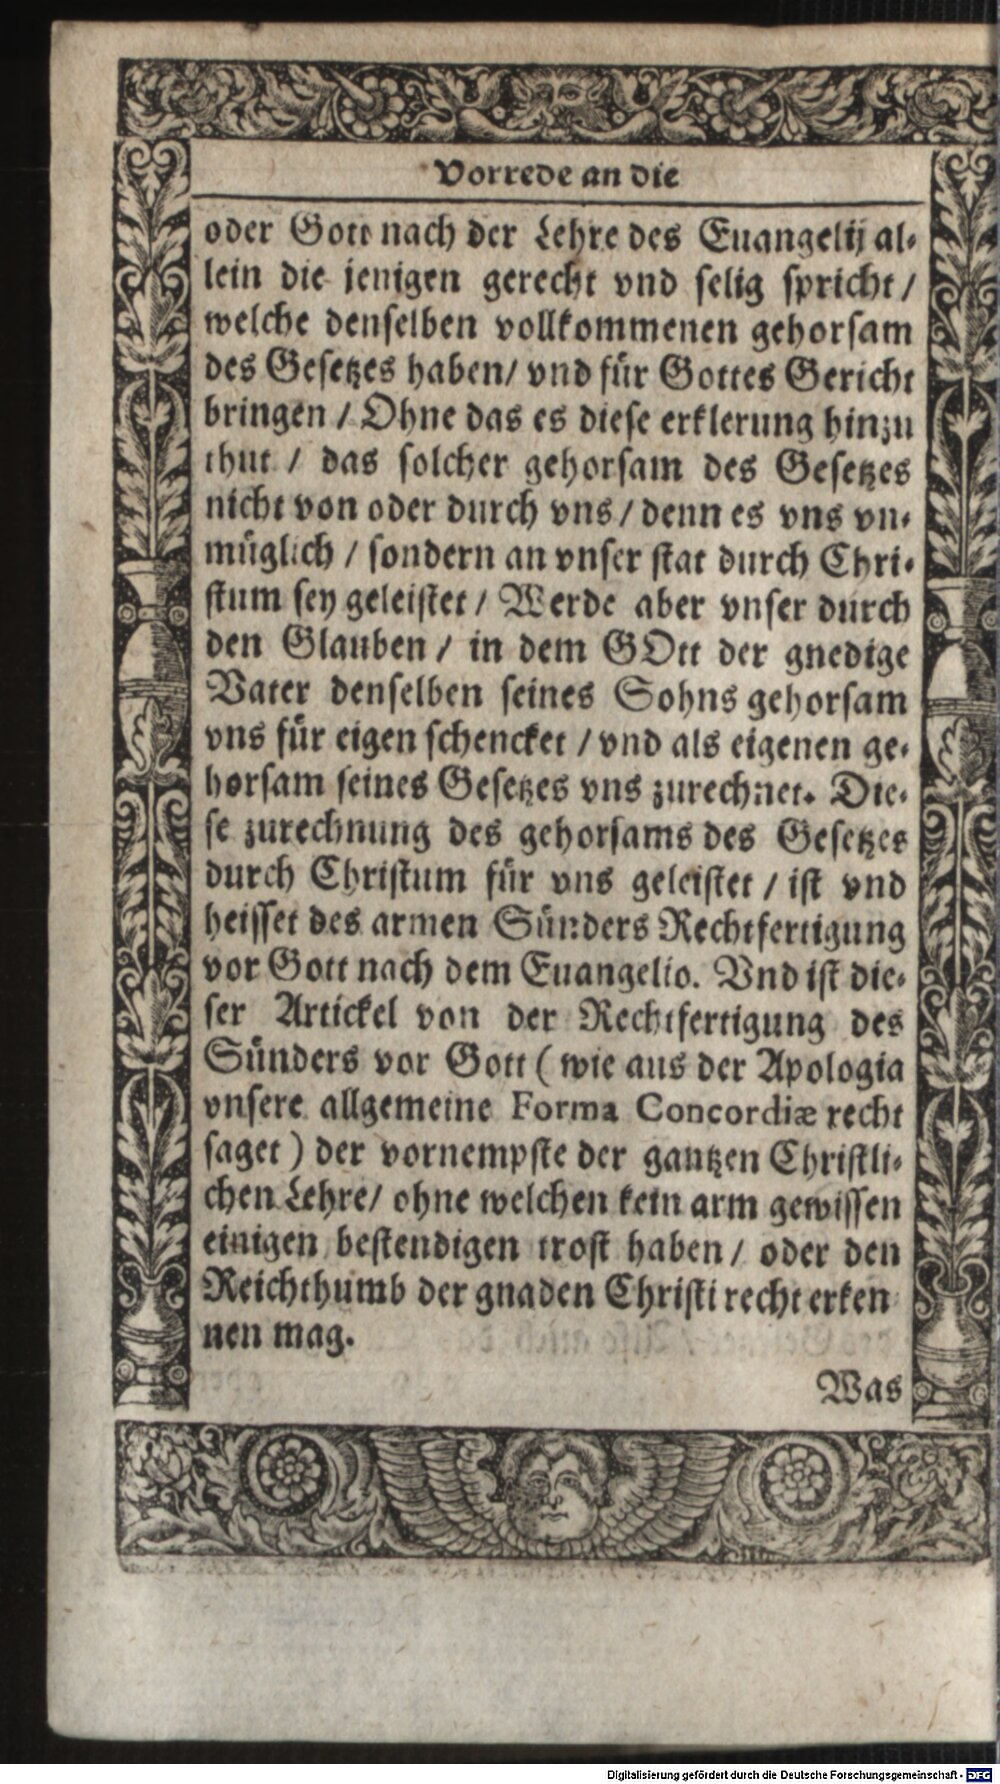 Vorrede an die
oder Gott nach der Lehre des Euangelij al-
lein die jenigen gerecht vnd selig spricht /
welche denselben vollkommenen gehorsam
des Gesetzes haben / vnd für Gottes Gericht
bringen / Ohne das es diese erklerung hinzu
thut / das solcher gehorsam des Gesetzes
nicht von oder durch vns / denn es vns vn-
müglich / sondern an vnser stat durch Chri-
stum sey geleistet / Werde aber vnser durch
den Glauben / in dem GOtt der gnedige
Vater denselben seines Sohns gehorsam
vns für eigen schencket / vnd als eigenen ge-
horsam seines Gesetzes vns zurechnet. Die-
se zurechnung des gehorsams des Gesetzes
durch Christum für vns geleistet / ist vnd
heisset des armen Sünders Rechtfertigung
vor Gott nach dem Euangelio. Vnd ist die-
ser Artickel von der Rechtfertigung des
Sünders vor Gott ( wie aus der Apologia
vnsere allgemeine Forma Concordiæ recht
saget ) der vornempste der gantzen Christli-
chen Lehre / ohne welchen kein arm gewissen
einigen bestendigen trost haben / oder den
Reichthumb der gnaden Christi recht erken
nen mag.
Was
Digitalisierung gefördert durch die Deutsche Forschungsgemeinschaft - DFG